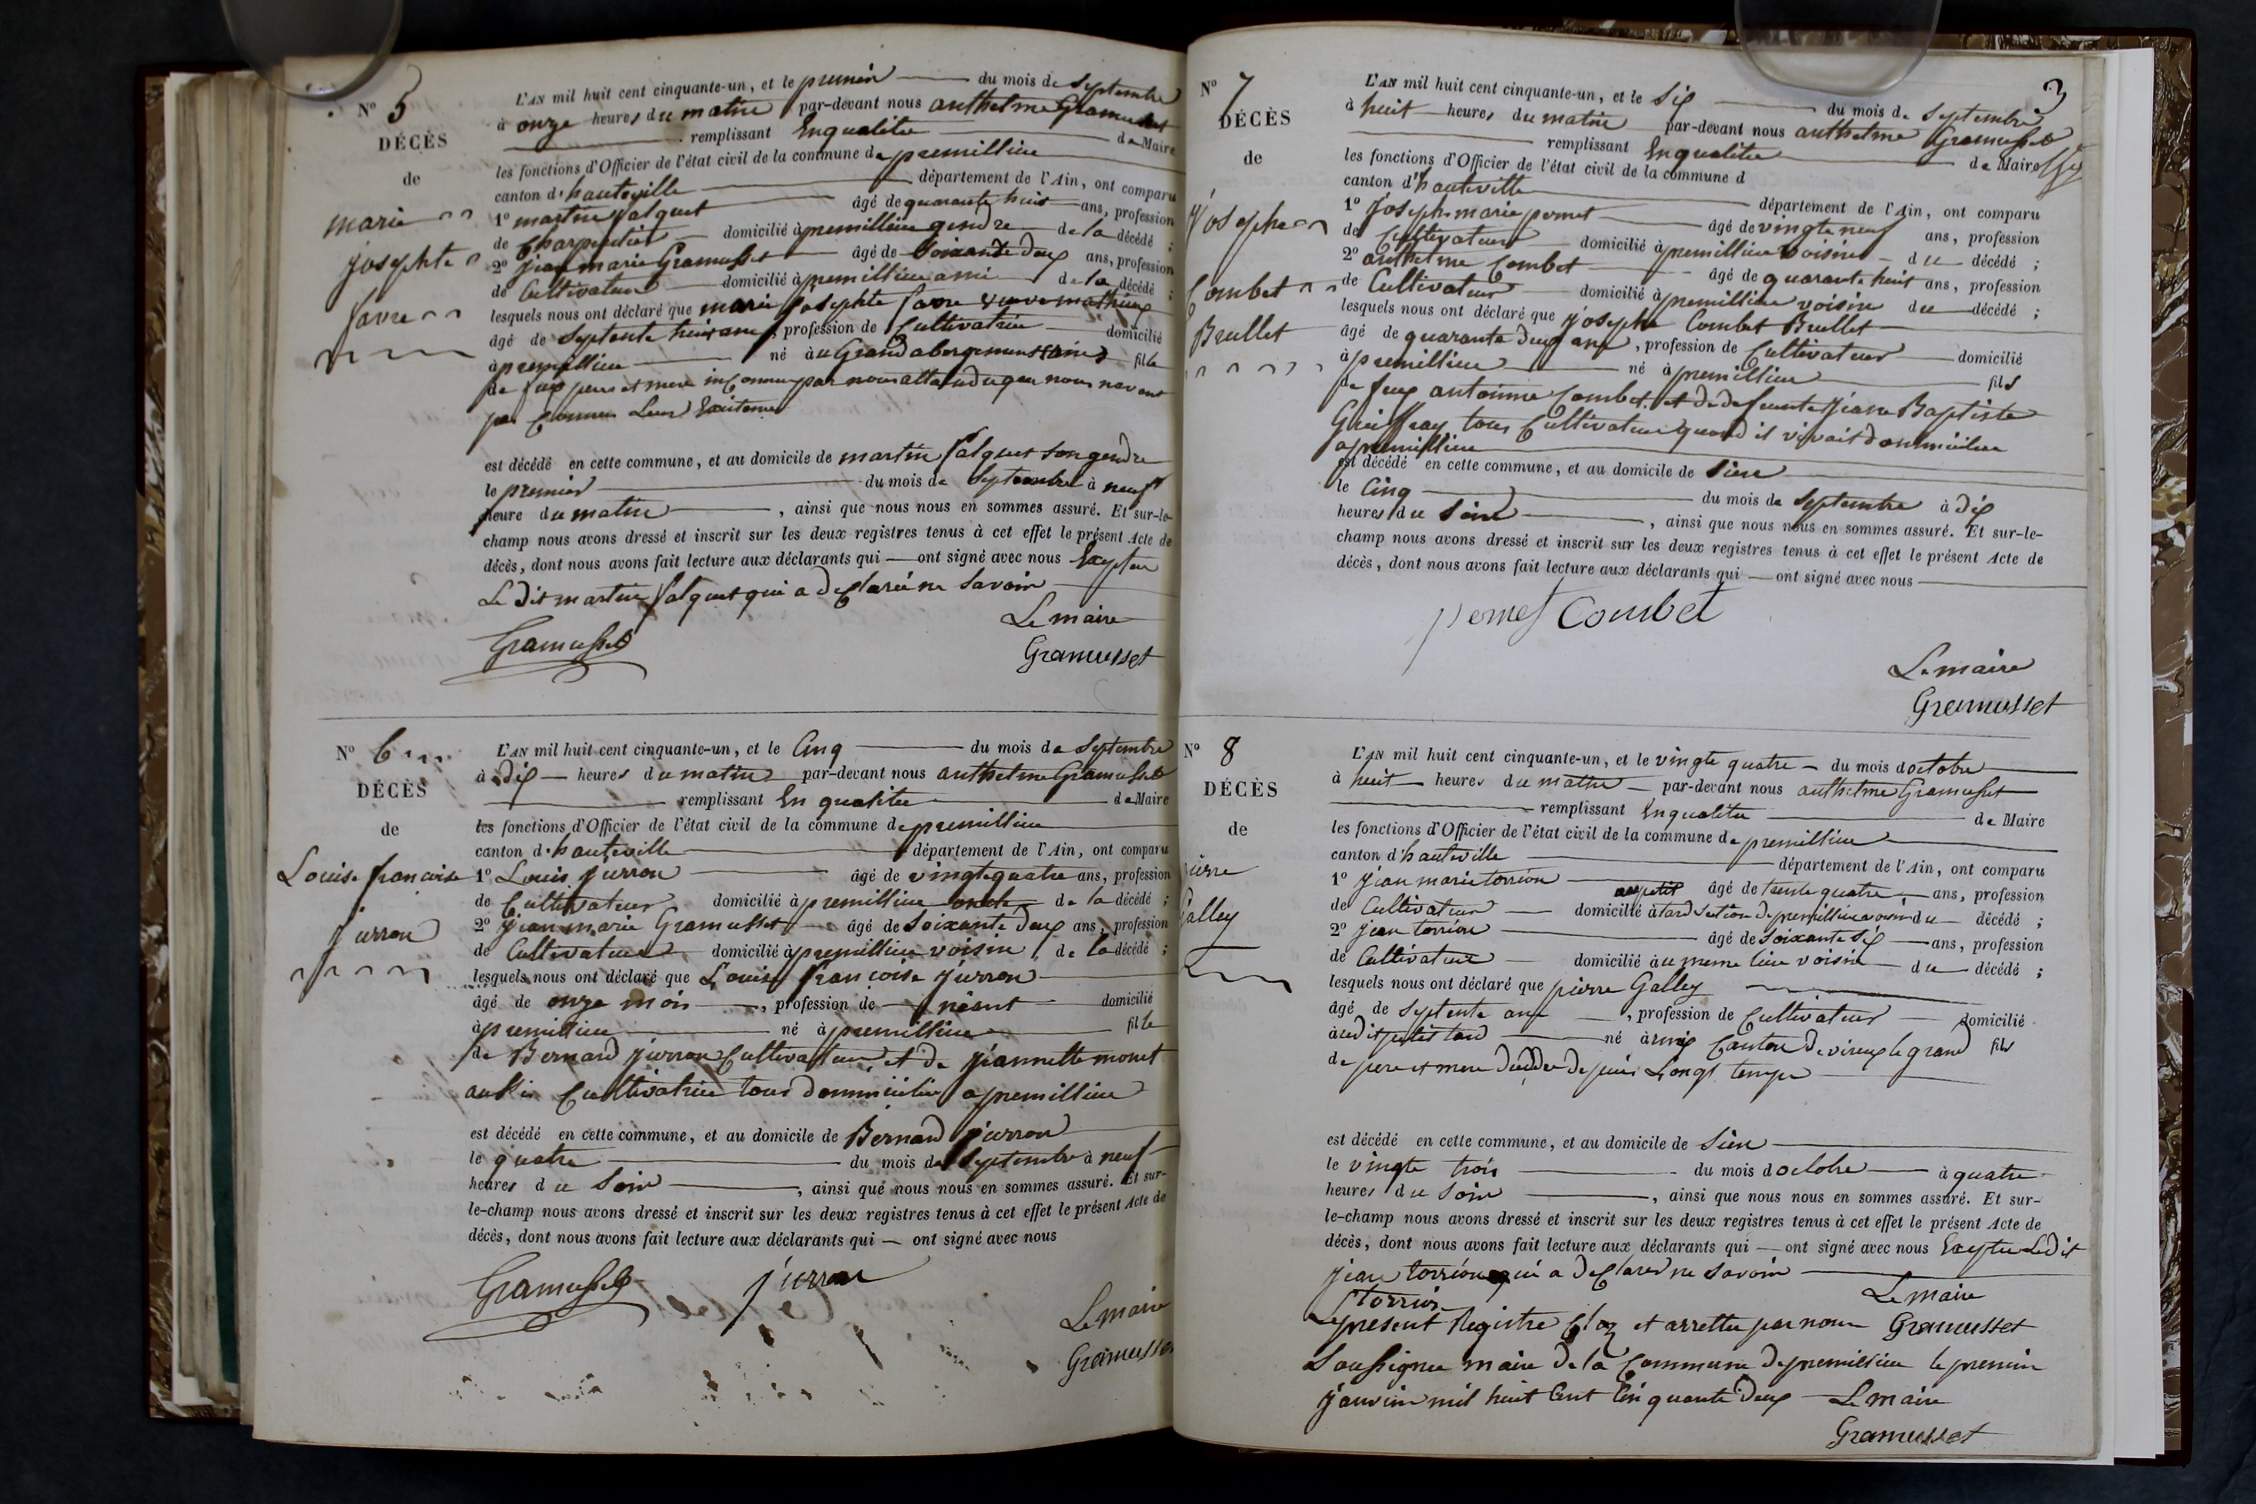 N° 5
DÉCÈS
de
marie
josephte
favre
L'AN mil huit cent cinquante-un, et le premier du mois de Septembre
à onze heures du matin par-devant nous anthelme Gramusset
remplissant Enqualitée de Maire
les fonctions d'Officier de l'état civil de la commune de premillieu
canton d'hauteville département de l'Ain, ont comparu
1° martin falquet âgé de quarante huit ans, profession
de Charpentier domicilié à premillieu gendre de la décédé ;
2° jean marie Gramusset âgé de Soixante deux ans, profession
de Cultivateur domicilié à premillieu ami de la décédé ;
lesquels nous ont déclaré que marie josephte favre veuve mathieu
âgé de Septente huit ans, profession de Cultivatrice domicilié
à premillieu né au Grand abergement fille
de feux pere et mere inConnu par nous attendu que nous navont
pas Connu Leur Existence
est décédé en cette commune, et au domicile de martin falquet son gendre
le premier du mois de Septembre à neuf
heure du matin, ainsi que nous nous en sommes assuré. Et sur-le-
champ nous avons dressé et inscrit sur les deux registres tenus à cet effet le présent Acte de
décès, dont nous avons fait lecture aux déclarants qui ont signé avec nous Exceptee
Le dit martin falquet qui a déClaréé ne Savoir
Gramusset
Le maire
Gramusset
N° 6
DÉCÈS
de
Louise francoise
jurron
L'AN mil huit cent cinquante-un, et le Cinq du mois de Septembre
à dix heures du matin par-devant nous anthelme Gramusset
remplissant En qualitée de Maire
les fonctions d'Officier de l'état civil de la commune de premillieu
canton d'hauteville département de l'Ain, ont comparu
1° Louis jurron âgé de vingtequatre ans, profession
de Cultivateur domicilié à premillieu oncle de la décédé ;
2° jean marie Gramusset âgé de Soixante deux ans, profession
de Cultivateur domicilié à premillieu voisin de la décédé ;
lesquels nous ont déclaré que Louise françoise jurron
âgé de onze mois, profession de néant domicilié
à premillieu né à premillieu fille
de Bernard jurron Cultivateur et de jeannette monet
aussi Cultivatrice tous dommicilier a premillieu
est décédé en cette commune, et au domicile de Bernard jurron
le quatre du mois de Septembre à neuf
heures du Soir, ainsi que nous nous en sommes assuré. Et sur-
le-champ nous avons dressé et inscrit sur les deux registres tenus à cet effet le présent Acte de
décès, dont nous avons fait lecture aux déclarants qui ont signé avec nous
Gramusset jurron
Le maire
Gramusset
3
N° 7
DÉCÈS
de
josephe
Combet
Brullet
L'AN mil huit cent cinquante-un, et le Six du mois de Septembre
à huit heures du matin par-devant nous anthelme Gramusset
remplissant Enqualitée de Maire
les fonctions d'Officier de l'état civil de la commune d
canton d'hauteville département de l'Ain, ont comparu
1° joseph marie pernet âgé de vingte neuf ans, profession
de Cultivateur domicilié à premillieu voisin du décédé ;
2° anthelme Combet âgé de quarante huit ans, profession
de Cultivateur domicilié à premillieu voisin du décédé ;
lesquels nous ont déclaré que josephe Combet Brullet
âgé de quarante deux ans, profession de Cultivateur domicilié
à premillieu né à premillieu fils
de feux antoinne Combet et de defuente jeane Baptiste
Grieffray tous Cultivateur quand il vivait dommicilier
a premillieu
est décédé en cette commune, et au domicile de Sien
le Cinq du mois de Septembre à dix
heures du Soir, ainsi que nous nous en sommes assuré. Et sur-le-
champ nous avons dressé et inscrit sur les deux registres tenus à cet effet le présent Acte de
décès, dont nous avons fait lecture aux déclarants qui ont signé avec nous
pernet Combet
Le maire
Gramusset
N° 8
DÉCÈS
de
pierre
Galley
L'AN mil huit cent cinquante-un, et le vingte quatre du mois doctobre
à huit heures du matin par-devant nous anthelme Gramusset
remplissant Enqualitée de Maire
les fonctions d'Officier de l'état civil de la commune de premillieu
canton d'hauteville département de l'Ain, ont comparu
1° jean marie torrion âgé de trente quatre ans, profession
de Cultivateur domicilié au petit tard Section de premillieu voisin du décédé ;
2° jean torrion âgé de Soixante Six ans, profession
de Cultivateur domicilié au meme lieu voisin du décédé ;
lesquels nous ont déclaré que pierre Galley
âgé de Septente ans, profession de Cultivateur domicilié
audit petit tard né à ruix Canton de virieux le grand fils
de pere et mere decedee depuis Longt temps
est décédé en cette commune, et au domicile de Sien
le vingte trois du mois doctobre à quatre
heures du Soir, ainsi que nous nous en sommes assuré. Et sur-
le-champ nous avons dressé et inscrit sur les deux registres tenus à cet effet le présent Acte de
décès, dont nous avons fait lecture aux déclarants qui ont signé avec nous Exceptee Ledit
jean torrion qui a deClaree ne Savoir
torrion Le maire
Le present Registre Cloz et arrettee par nous Gramusset
Soussignee maire de la Commune de premillieu le premier
janvier mil huit Cent Cinquante deux Le maire
Gramusset